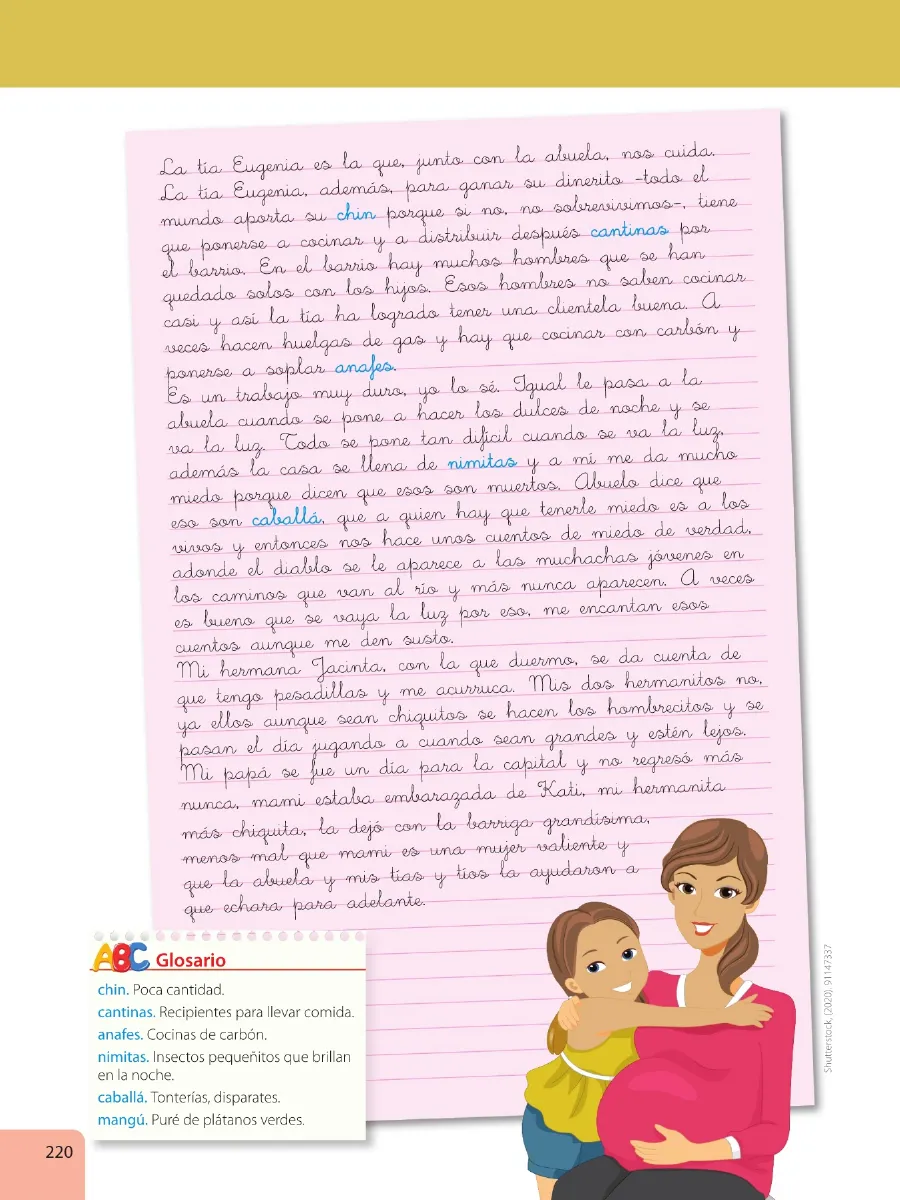 La tía Eugenia es la que, junto con la abuela, nos cuida.
La tía Eugenia, además, para ganar su dinerito -todo el
mundo aporta su chin porque si no, no sobrevivimos-, tiene
que ponerse a cocinar y a distribuir después cantinas por
el barrio. En el barrio hay muchos hombres que se han
quedado solos con los hijos. Esos hombres no saben cocinar
casi y así la tía ha logrado tener una clientela buena. A
veces hacen huelgas de gas y hay que cocinar con carbón y
ponerse a soplar anafes.
Es un trabajo muy duro, yo lo sé. Igual le pasa a la
abuela cuando se pone a hacer los dulces de noche y se
va la luz. Todo se pone tan difícil cuando se va la luz,
además la casa se llena de nimitas y a mí me da mucho
miedo porque dicen que esos son muertos. Abuelo dice que
eso son caballá, que a quien hay que tenerle miedo es a los
vivos y entonces nos hace unos cuentos de miedo de verdad,
adonde el diablo se le aparece a las muchachas jóvenes en
los caminos que van al río y más nunca aparecen. A veces
es bueno que se vaya la luz por eso, me encantan esos
cuentos aunque me den susto.
Mi hermana Jacinta, con la que duermo, se da cuenta de
que tengo pesadillas y me acurruca. Mis dos hermanitos no,
ya ellos aunque sean chiquitos se hacen los hombrecitos y se
pasan el día jugando a cuando sean grandes y estén lejos.
Mi papá se fue un día para la capital y no regresó más
nunca, mami estaba embarazada de Kati, mi hermanita
más chiquita, la dejó con la barriga grandísima,
menos mal que mami es una mujer valiente y
que la abuela y mis tías y tíos la ayudaron a
que echara para adelante.
ABC Glosario
chin. Poca cantidad.
cantinas. Recipientes para llevar comida.
anafes. Cocinas de carbón.
nimitas. Insectos pequeñitos que brillan
en la noche.
caballá. Tonterías, disparates.
mangú. Puré de plátanos verdes.
Shutterstock, (2020). 91147337
220